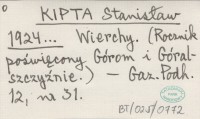 KIPTA Stanisław
1924... Wierchy. (Rocznik
poświęcony Górom i Góral-
szczyźnie.) — Gaz. Podh.
12, nr 31.
BT/025/0772